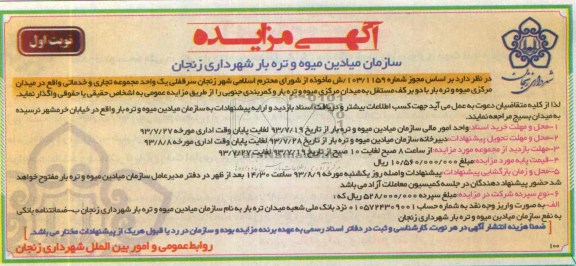 آگهی مزایده
نوبت اول
شهرداری زنجان
سازمان میادین میوه و تره بار شهرداری زنجان
در نظر دارد بر اساس مجوز شماره ۱۰۳/۱۱۵۹/ش مأخوذه از شورای محترم اسلامی شهر زنجان سرقفلی یک واحد مجموعه تجاری و خدماتی واقع در میدان
مرکزی میوه و تره بار با دو برکف مستقل به میدان مرکزی میوه و تره بار و کمربندی جنوبی را از طریق مزایده عمومی به اشخاص حقیقی یا حقوقی واگذار نماید.
لذا از کلیه متقاضیان دعوت به عمل می آید جهت کسب اطلاعات بیشتر و دریافت اسناد بازدید و ارایه پیشنهادات به سازمان میادین میوه و تره بار واقع در خیابان خرمشهر نرسیده
به میدان بسیج مراجعه نمایند.
۱-محل و مهلت خرید اسناد: واحد امور مالی سازمان میادین میوه و تره بار از تاریخ ۹۳/۷/۱۹ لغایت پایان وقت اداری مورخه ۹۳/۷/۲۷
۲-محل و مهلت تحویل پیشنهادات: دبیرخانه سازمان میادین میوه و تره بار از تاریخ ۹۳/۷/۲۸ لغایت پایان وقت اداری مورخه ۹۳/۸/۸
۳-مهلت بازدید از مجموعه مورد مزایده: از ساعت ۸ صبح لغایت ۱۰ صبح از تاریخ لغایت ۹۳/۷/۲۷
۴-قیمت پایه مورد مزایده: مبلغ ۱۰/۵۶۰/۰۰۰/۰۰۰ ریال
۵-محل و زمان بازگشایی پیشنهادات: پیشنهادات واصله روز یکشنبه مورخه ۹۳/۸/۹ ساعت ۱۴/۳۰ بعد از ظهر در دفتر مدیرعامل سازمان میادین میوه و تره بار مفتوح خواهد
شد حضور پیشنهاد دهندگان در جلسه کمیسیون معاملات آزاد می باشد
۶-نوع سپرده شرکت در مزایده: مبلغ سپرده ۵۲۸/۰۰۰/۰۰۰ ریال که:
الف-به صورت واریز وجه نقد به شماره حساب ۰۱۰۵۷۲۴۳۰۹۰۰۱ نزد بانک ملی شعبه میدان تره بار به نام سازمان میادین میوه و تره بار شهرداری زنجان ب-ضمانتنامه بانکی
به نفع سازمان میادین میوه و تره بار شهرداری زنجان
ضمنا هزینه انتشار آگهی در هر نوبت، کارشناسی و ثبت در دفاتر اسناد رسمی به عهده برنده مزایده بوده و سازمان در رد یا قبول هریک از پیشنهادات مختار می باشد.
روابط عمومی و امور بین الملل شهرداری زنجان
۱۰۰